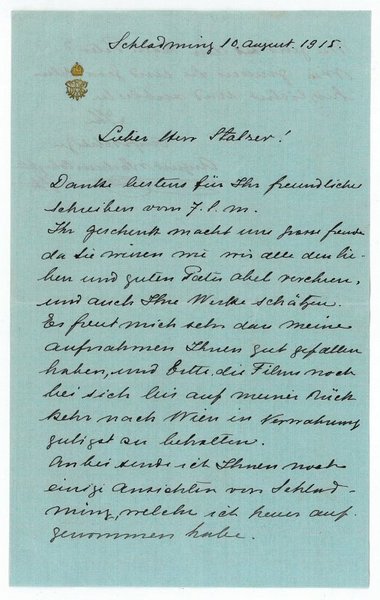 Schladming 10. August. 1915.
Lieber Herr Stalzer!
Danke bestens für Ihr freundliche
Schreiben vom 7. l. m.
Ihr geschenk macht uns grosse freude
da Sie wissen wie wir alle den lie-
ben und guten Pater Abel verehren,
und auch Ihre Werke schätzen.
Es freut mich sehr dass meine
aufnahmen Ihnen gut gefallen
haben, und bitte, die Films noch
bei sich bis auf meiner Rück
kehr nach Wien in Verwahrung
gutigst zu behalten.
Anbei sende ich Ihnen noch
einige Ansichten von Schlad-
ming, welche ich heuer auf-
genommen habe.